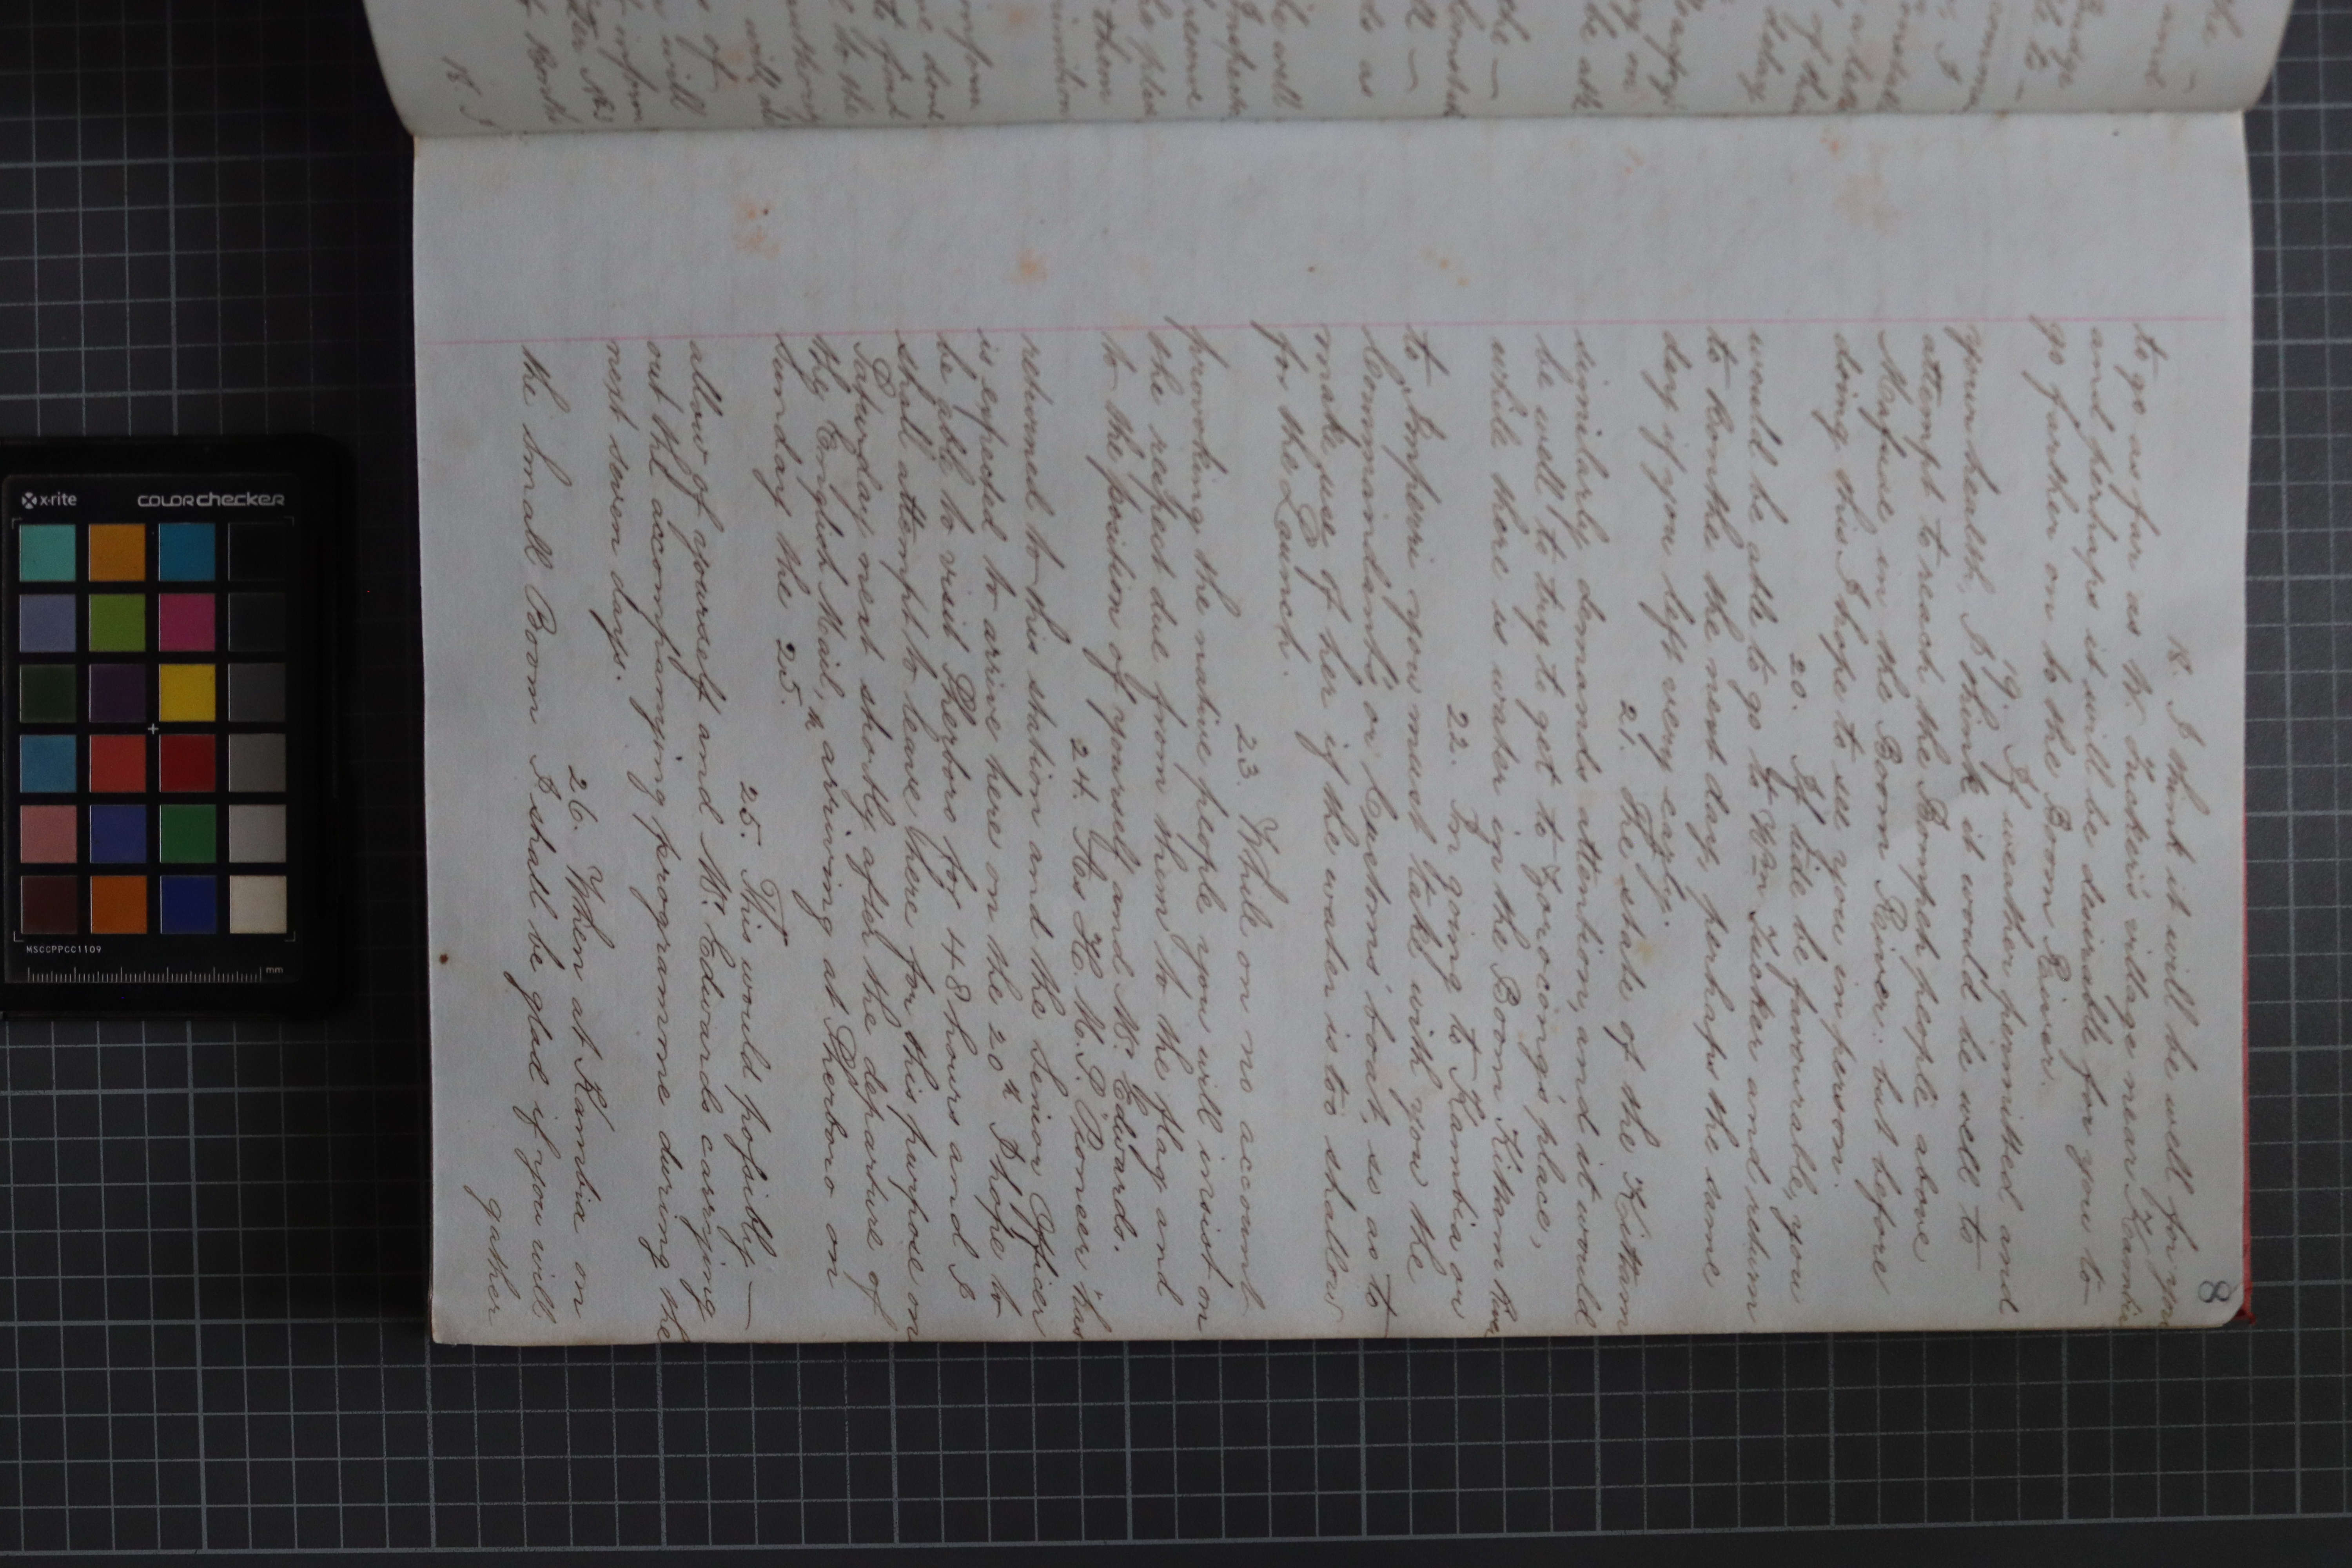 8
18. I think it will be well for you
to go as far as W. Tucker's village near Kambia
and perhaps it will be desirable for you to
go further on to the Boom River.
19. If weather permitted and
your health, I think it would be well to
attempt to reach the Bompeh people above
Mafue in the Boom River: but before
doing this I hope to see you in person.
20. If tide be favourable, you
would be able to go to Wm Tucker and return
to Bonthe the next day, perhaps the same
day if you left very early.
21. The state of the Kittam
similarly demands attention, and it would
be well to try to get to Zorocong's place,
while there is water in the Boom Kittam River
22. In going to Kambia or
to Imperri you must take with you the
Commandant's or Customs' boat, so as to
make use of her if the water is too shallow
for the Launch.
23. While on no account
provoking the native people you will insist on
the respect due from them to the flag and
to the position of yourself and Mr. Edwards.
24. As H.M.S. Pioneer has
returned to this station and the Senior Officer
is expected to arrive here on the 20th I hope to
be able to visit Sherboro for 48 hours and I
shall attempt to leave here for this purpose on
Saturday next shortly after the departure of
the English Mail, arriving at Sherboro on
Sunday the 25th.
25. This would possibly —
allow of yourself and Mr. Edwards carrying
out the accompanying programme during the
next seven days.
26. When at Kambia on
the Small Boom I shall be glad if you will
gather
x·rite
colorchecker
MSCCPPCC1109
mm